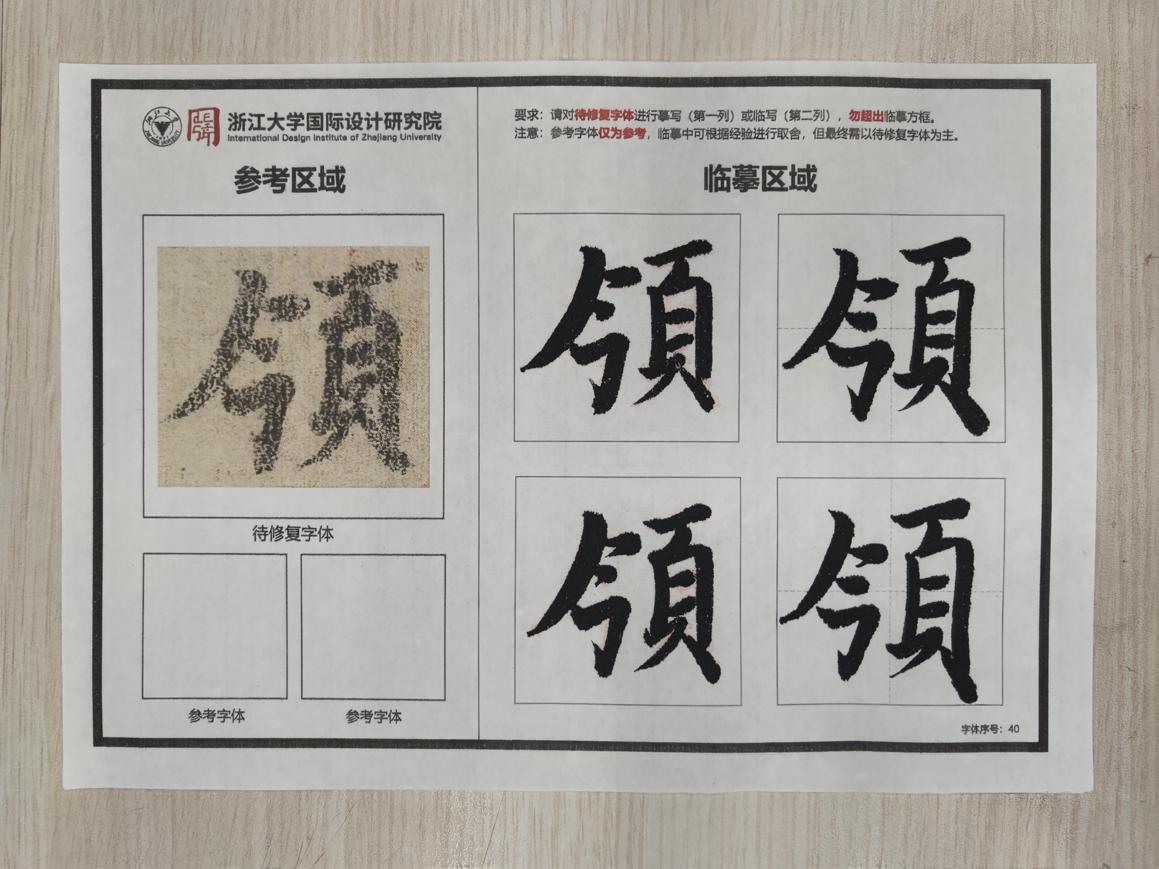 浙江大学国际设计研究院
International Design Institute of Zhejiang University
参考区域
領
待修复字体
参考字体 参考字体
要求：请对待修复字体进行摹写（第一列）或临写（第二列），勿超出临摹方框。
注意：参考字体仅为参考，临摹中可根据经验进行取舍，但最终需以待修复字体为主。
临摹区域
領 領
領 領
字体序号：40